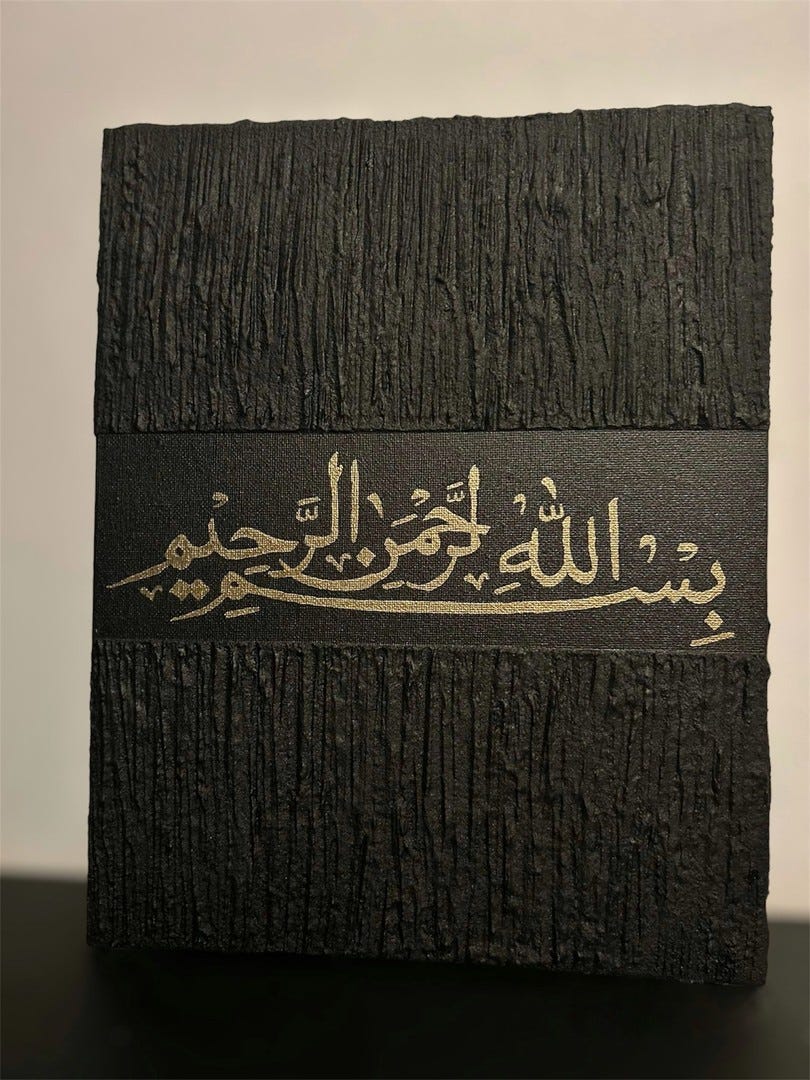 بِسْمِ اللّهِ لرَّحْمَنِ الرَّحِيْمِ